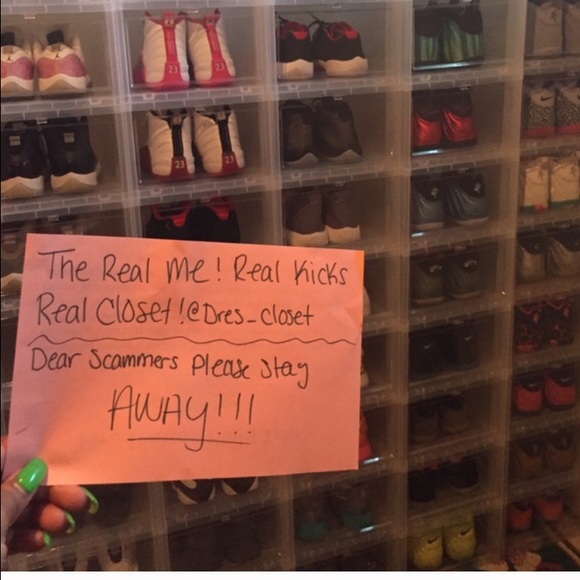 The Real Me! Real Kicks
Real Closet!@Dres_closet
Dear Scammers Please Stay
AWAY!!!
23
23
23
23